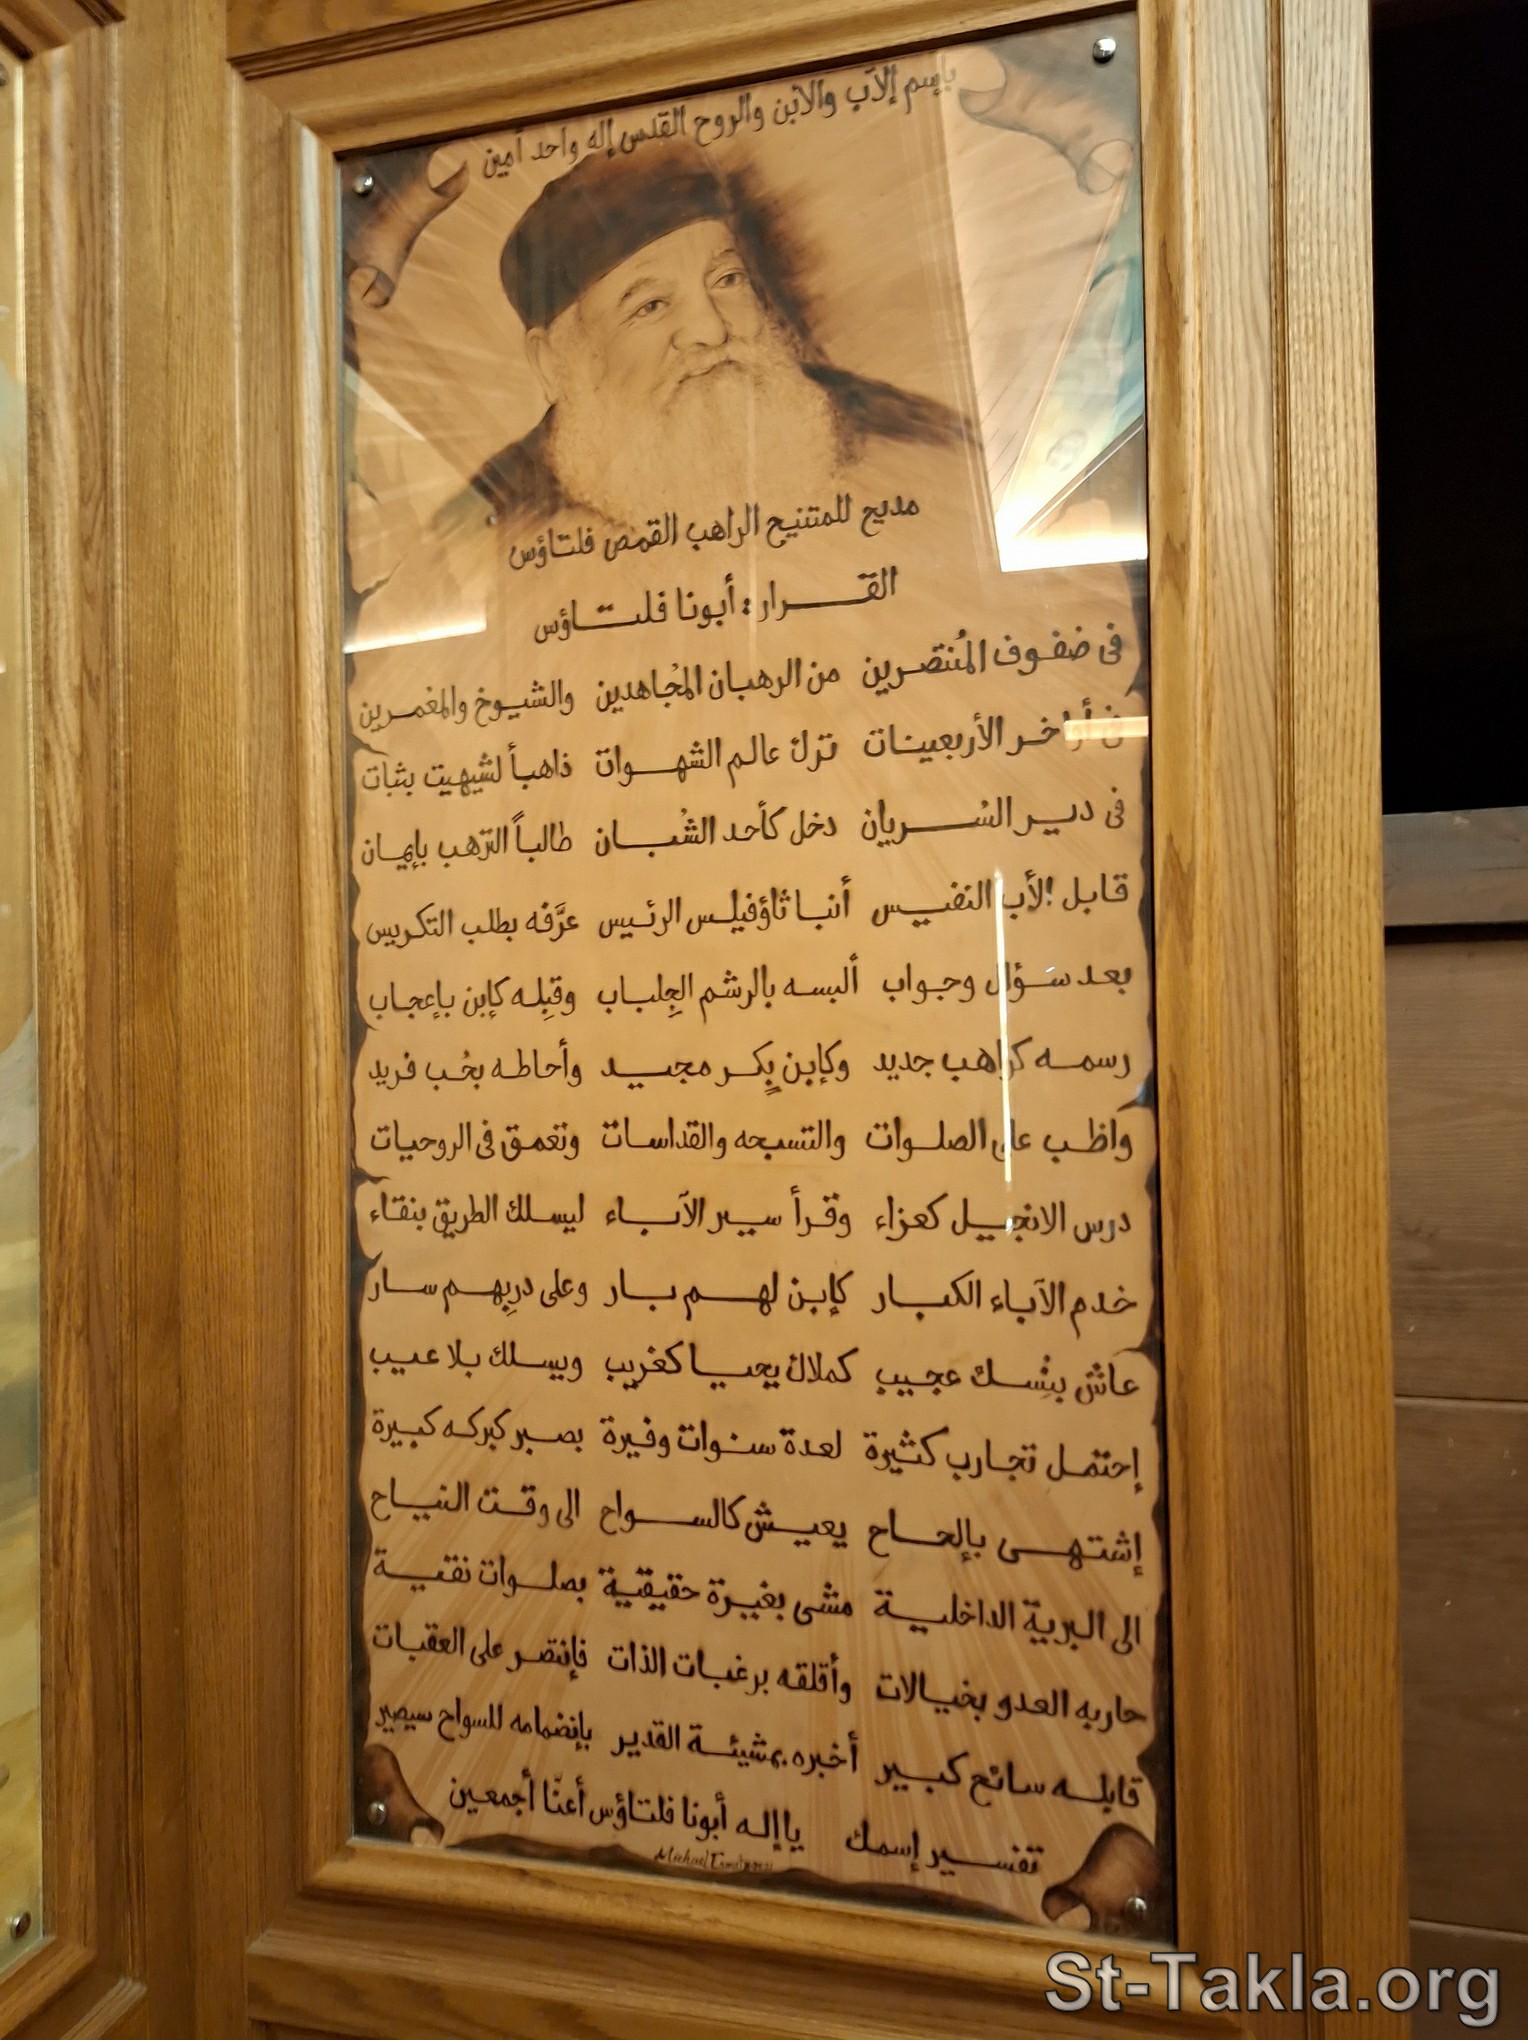 بإسم الآب والأبن والروح القدس إله واحد أمين
مديح للمتنيح الراهب القمص فلتاؤس
القـــرار: أبونا فلتــاؤس
فى ضفوف المُنتصرين من الرهبان المجُاهدين والشيوخ والمغمرين
فى أواخر الأربعينات ترك عالم الشهوات ذاهباً لشيهيت بثبات
فى دير السُريان دخل كأحد الشُبان طالباً الترهب بإيمان
قابل الأب النفيس أنبا ثاؤفيلس الرئيس عرَّفه بطلب التكريس
بعد سؤال وجواب ألبسه بالرشم الجِلباب وقبِله كإبن بإعجاب
رسمه كراهب جديد وكإبن بِكر مجيد وأحاطه بحُب فريد
واظب على الصلوات والتسبحه والقداسات وتعمق فى الروحيات
درس الانجيل كعزاء وقرأ سير الآباء ليسلك الطريق بنقاء
خدم الآباء الكبار كإبن لهم بار وعلى دربِهم سار
عاش بنُسك عجيب كملاك يحيا كغريب ويسلك بلا عيب
إحتمل تجارب كثيرة لعدة سنوات وفيرة بصبر كبركه كبيرة
إشتهى بإلحاح يعيش كالسواح الى وقت النياح
الى البرية الداخلية مشى بغيرة حقيقية بصلوات نقية
حاربه العدو بخيالات وأقلقه برغبات الذات فإنتصر على العقبات
قابله سائح كبير أخبره بمشيئة القدير بإنضمامه للسواح سيصير
تفسير إسمك يا إله أبونا فلتاؤس أعنّا أجمعين
Michael
St-Takla.org